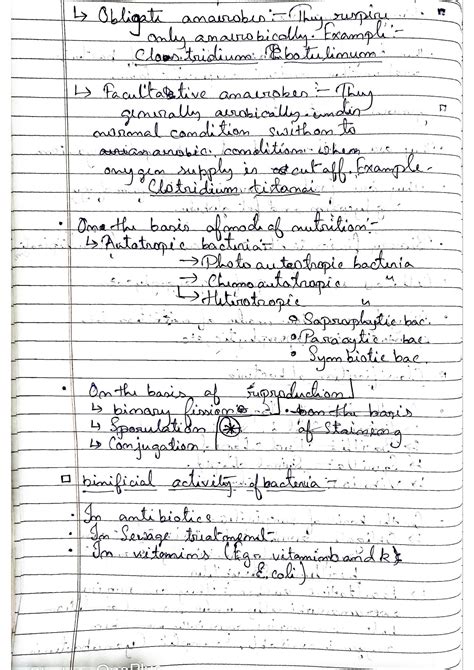 ↳ Obligate anaerobes :- They respire
only anaerobically. Example :-
Clostridium botulinum
↳ Facultative anaerobes :- They
generally aerobically under
normal condition swithon to
anarobic condition when
oxygen supply is cut off. Example -
Clotridium titanai
• One the basis of mode of nutrition :-
↳ Autotropic bacteria :-
→ Photo autotropic bacteria
→ Chemoautotropic "
↳ Heterotropic "
• Saprophytic bac.
• Paracytic bac
• Symbiotic bac
• On the basis of reproduction
↳ binary fission • on the basis
↳ Sporulation of Staining
↳ Conjugation
□ binificial activity of bacteria :-
• In antibiotics
• In Sewage treatment
• In vitamins (Eg - vitamin b and k
E.coli)